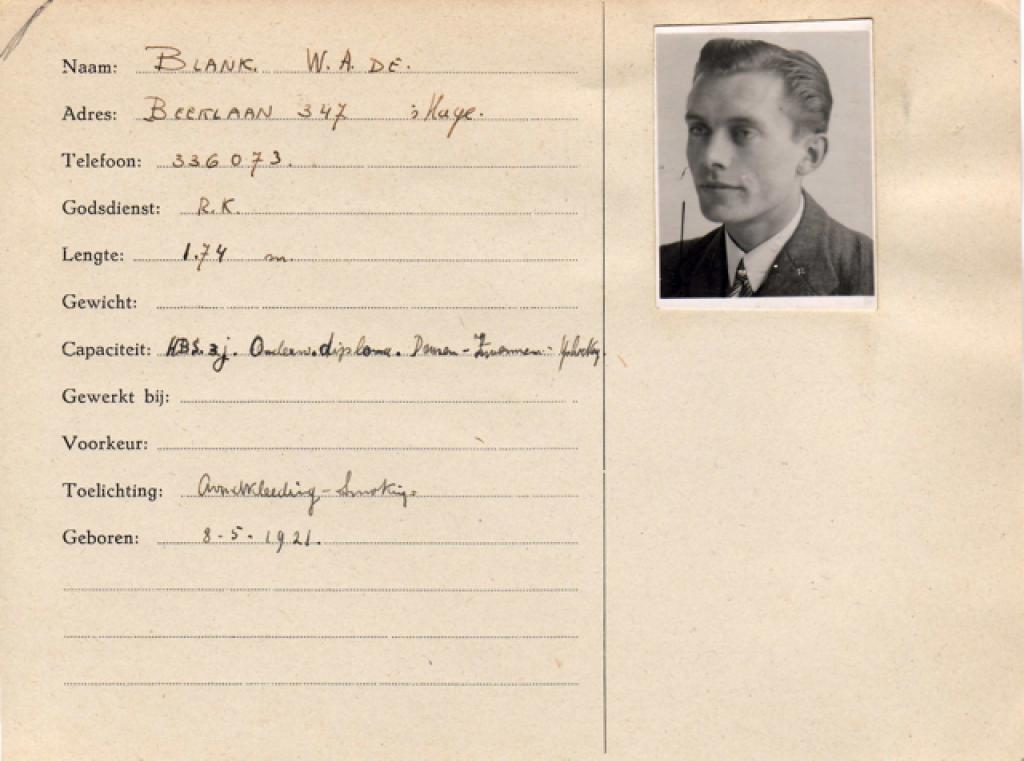 Naam: BLANK. W. A. DE.
Adres: BEEKLAAN 347 's Hage.
Telefoon: 336073.
Godsdienst: R.K.
Lengte: 1.74 m.
Gewicht:
Capaciteit: HBS. 3j. Onderw. diploma. Dansen - Zwemmen -
Gewerkt bij:
Voorkeur:
Toelichting: Avondkleeding - Smoking.
Geboren: 8-5-1921.